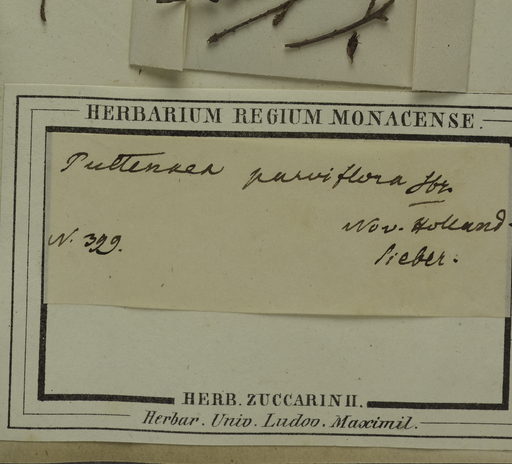 HERBARIUM REGIUM MONACENSE.
Pultenaea parviflora Sbr.
Nov. Holland.
N. 399.
Sieber.
HERB. ZUCCARINII.
Herbar. Univ. Ludov. Maximil.